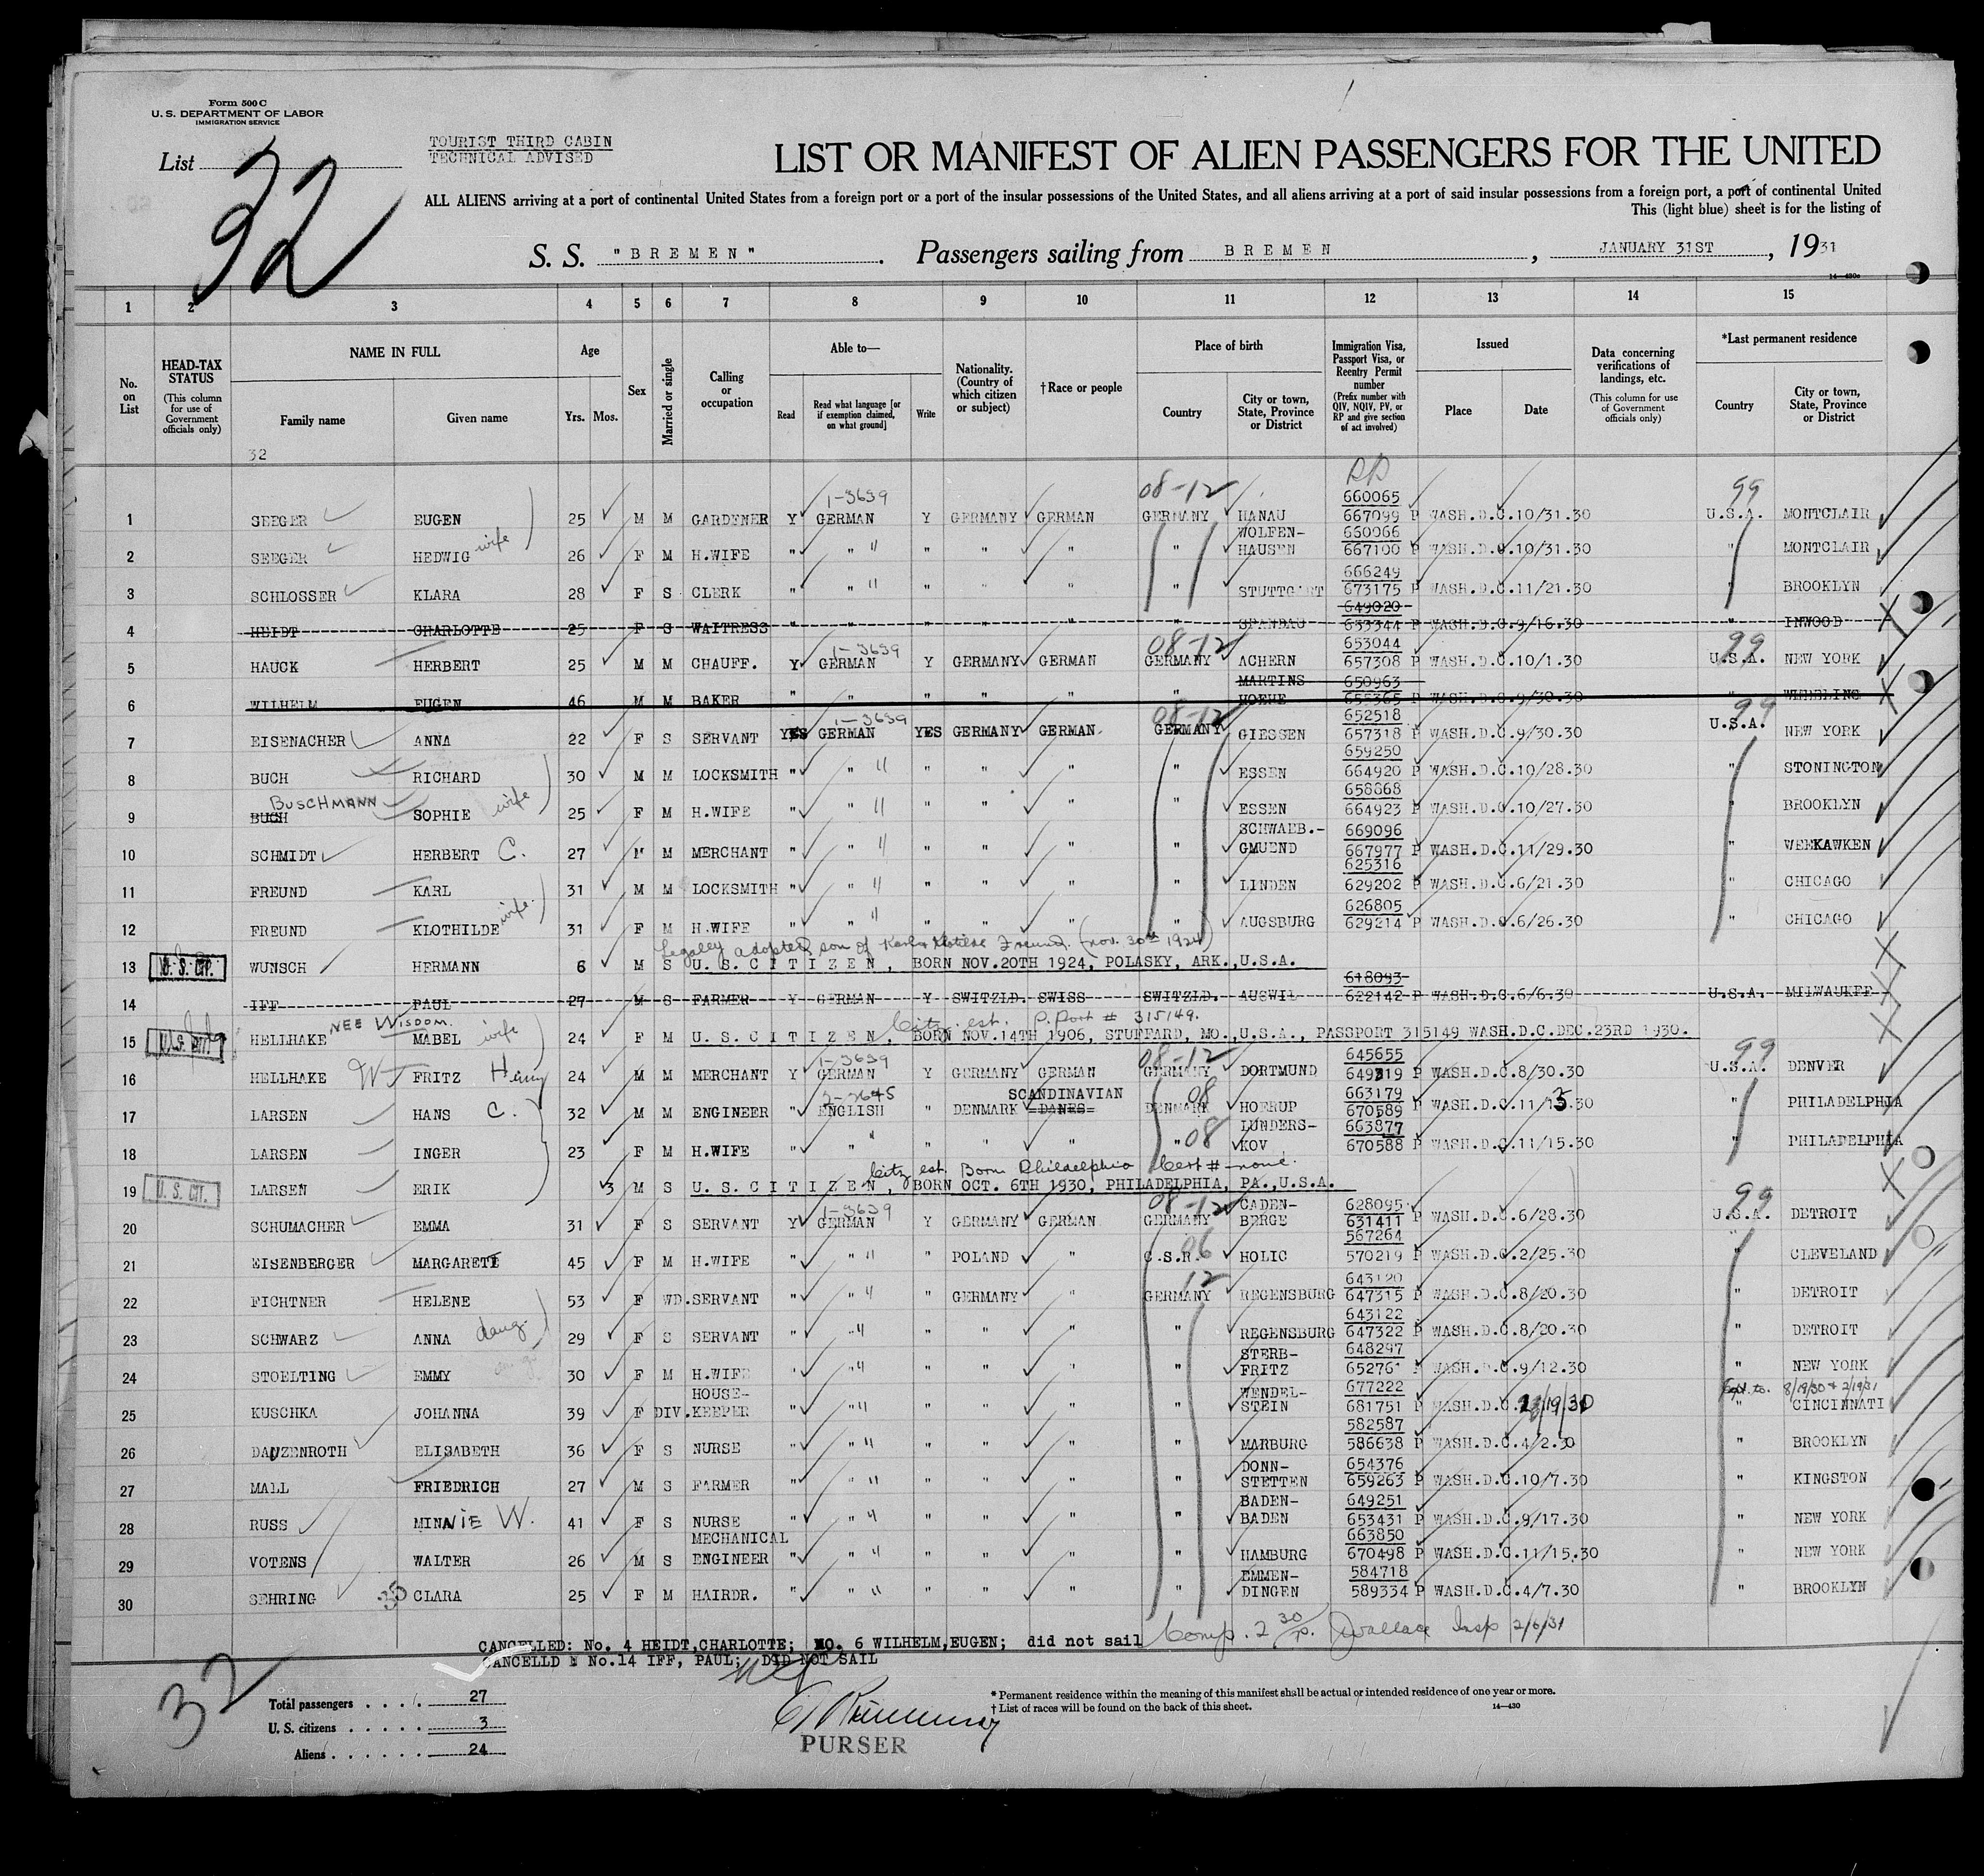 Form 500 C
U. S. DEPARTMENT OF LABOR
IMMIGRATION SERVICE
List 32
TOURIST THIRD CABIN
TECHNICAL ADVISED
LIST OR MANIFEST OF ALIEN PASSENGERS FOR THE UNITED
ALL ALIENS arriving at a port of continental United States from a foreign port or a port of the insular possessions of the United States, and all aliens arriving at a port of said insular possessions from a foreign port, a port of continental United
This (light blue) sheet is for the listing of
S. S. "BREMEN". Passengers sailing from BREMEN, JANUARY 31ST, 1931
14—430a
1 2 3 4 5 6 7 8 9 10 11 12 13 14 15
No. on List
HEAD-TAX STATUS (This column for use of Government officials only)
NAME IN FULL Family name Given name
Age Yrs. Mos.
Sex
Married or single
Calling or occupation
Able to— Read Read what language [or if exemption claimed, on what ground] Write
Nationality. (Country of which citizen or subject)
† Race or people
Place of birth Country City or town, State, Province or District
Immigration Visa, Passport Visa, or Reentry Permit number (Prefix number with QIV, NQIV, PV, or RP and give section of act involved)
Issued Place Date
Data concerning verifications of landings, etc. (This column for use of Government officials only)
*Last permanent residence Country City or town, State, Province or District
32
RP
1-3639 08-12 660065 99
1 SEEGER EUGEN 25 M M GARDENER Y GERMAN Y GERMANY GERMAN GERMANY HANAU 667099 P WASH.D.C.10/31.30 U.S.A. MONTCLAIR
WOLFEN- 660066
2 SEEGER HEDWIG wife 26 F M H.WIFE " " " " " " " HAUSEN 667100 P WASH.D.C.10/31.30 " MONTCLAIR
666249
3 SCHLOSSER KLARA 28 F S CLERK " " " " " " " STUTTGART 673175 P WASH.D.C.11/21.30 " BROOKLYN
649020
4 HEIDT CHARLOTTE 25 F S WAITRESS " " " " " " SPANDAU 653344 P WASH.D.C.9/16.30 " INWOOD
1-3639 08-12 653044 99
5 HAUCK HERBERT 25 M M CHAUFF. Y GERMAN Y GERMANY GERMAN GERMANY ACHERN 657308 P WASH.D.C.10/1.30 U.S.A. NEW YORK
MARTINS 650963
6 WILHELM EUGEN 46 M M BAKER " " " " " " HOEHE 655365 P WASH.D.C.9/30.30 "
1-3639 08-12 652518 99
7 EISENACHER ANNA 22 F S SERVANT YES GERMAN YES GERMANY GERMAN GERMANY GIESSEN 657318 P WASH.D.C.9/30.30 U.S.A. NEW YORK
659250
8 BUCH RICHARD 30 M M LOCKSMITH " " " " " " " ESSEN 664920 P WASH.D.C.10/28.30 " STONINGTON
BUSCHMANN 658868
9 BUCH SOPHIE wife 25 F M H.WIFE " " " " " " " ESSEN 664923 P WASH.D.C.10/27.30 " BROOKLYN
SCHWAEB.- 669096
10 SCHMIDT HERBERT C. 27 M M MERCHANT " " " " " " " GMUEND 667977 P WASH.D.C.11/29.30 " WEEKAWKEN
625316
11 FREUND KARL 31 M M LOCKSMITH " " " " " " " LINDEN 629202 P WASH.D.C.6/21.30 " CHICAGO
626805
12 FREUND KLOTHILDE wife. 31 F M H.WIFE " " " " " " " AUGSBURG 629214 P WASH.D.C.6/26.30 " CHICAGO
Legally adopted son of Karl & Klotilde Freund. (Nov. 30th 1924)
U. S. CIT. 13 WUNSCH HERMANN 6 M S U. S. CITIZEN, BORN NOV.20TH 1924, POLASKY, ARK.,U.S.A.
618093
14 IFF PAUL 27 M S FARMER Y GERMAN Y SWITZLD. SWISS SWITZLD. AUSWIL 622142 P WASH.D.C.6/6.30 U.S.A. MILWAUKEE
NEE WISDOM. Citz. est. P.Port # 315149.
U. S. CIT. 15 HELLHAKE MABEL wife 24 F M U. S. CITIZEN, BORN NOV.14TH 1906, STUFFARD, MO.,U.S.A., PASSPORT 315149 WASH.D.C.DEC.23RD 1930.
1-3639 08-12 645655 99
16 HELLHAKE FRITZ Henry 24 M M MERCHANT Y GERMAN Y GERMANY GERMAN GERMANY DORTMUND 649319 P WASH.D.C.8/30.30 U.S.A. DENVER
2-2645 SCANDINAVIAN 08 663179
17 LARSEN HANS C. 32 M M ENGINEER " ENGLISH " DENMARK DANES DENMARK HOERUP 670589 P WASH.D.C.11/15.30 " PHILADELPHIA
LUNDERS- 663877
18 LARSEN INGER 23 F M H.WIFE " " " " " " 08 KOV 670588 P WASH.D.C.11/15.30 " PHILADELPHIA
Citz. est. Born Philadelphia Cert # none.
U. S. CIT. 19 LARSEN ERIK 3 M S U. S. CITIZEN, BORN OCT. 6TH 1930, PHILADELPHIA, PA.,U.S.A.
1-3639 08-12 CADEN- 628095 99
20 SCHUMACHER EMMA 31 F S SERVANT Y GERMAN Y GERMANY GERMAN GERMANY BERGE 631411 P WASH.D.C.6/28.30 U.S.A. DETROIT
06 567264
21 EISENBERGER MARGARETE 45 F M H.WIFE " " " " POLAND " C.S.R. HOLIC 570219 P WASH.D.C.2/25.30 " CLEVELAND
12 643120
22 FICHTNER HELENE 53 F WD. SERVANT " " " " GERMANY " GERMANY REGENSBURG 647315 P WASH.D.C.8/20.30 " DETROIT
643122
23 SCHWARZ ANNA daug. 29 F S SERVANT " " " " " " " REGENSBURG 647322 P WASH.D.C.8/20.30 " DETROIT
STERB- 648297
24 STOELTING EMMY 30 F M H.WIFE " " " " " " " FRITZ 65276 P WASH.D.C.9/12.30 " NEW YORK
HOUSE- WENDEL- 677222 8/19/30 & 2/19/31
25 KUSCHKA JOHANNA 39 F DIV. KEEPER " " " " " " " STEIN 681751 P WASH.D.C. /19/30 " CINCINNATI
582587
26 DAUZENROTH ELISABETH 36 F S NURSE " " " " " " " MARBURG 586638 P WASH.D.C.4/2.30 " BROOKLYN
DONN- 654376
27 MALL FRIEDRICH 27 M S FARMER " " " " " " " STETTEN 659263 P WASH.D.C.10/7.30 " KINGSTON
BADEN- 649251
28 RUSS MINNIE W. 41 F S NURSE " " " " " " " BADEN 653431 P WASH.D.C.9/17.30 " NEW YORK
MECHANICAL 663850
29 VOTENS WALTER 26 M S ENGINEER " " " " " " " HAMBURG 670498 P WASH.D.C.11/15.30 " NEW YORK
EMMEN- 584718
30 SEHRING 35 CLARA 25 F M HAIRDR. " " " " " " " DINGEN 589334 P WASH.D.C.4/7.30 " BROOKLYN
CANCELLED: No. 4 HEIDT,CHARLOTTE; NO. 6 WILHELM,EUGEN; did not sail
Comp. 2 30/p. JWallace Insp 2/6/31
CANCELLD No.14 IFF, PAUL; DID NOT SAIL
32
Total passengers . . . . 27
U. S. citizens . . . . . 3
Aliens . . . . . . 24
PURSER
* Permanent residence within the meaning of this manifest shall be actual or intended residence of one year or more.
† List of races will be found on the back of this sheet. 14—430